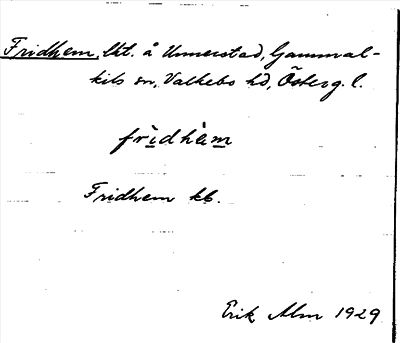 Fridhem, lht. å Unnerstad, Gammal-
kils sn, Valkebo hd, Österg. l.
fridhèm
Fridhem kb.
Erik Alm 1929